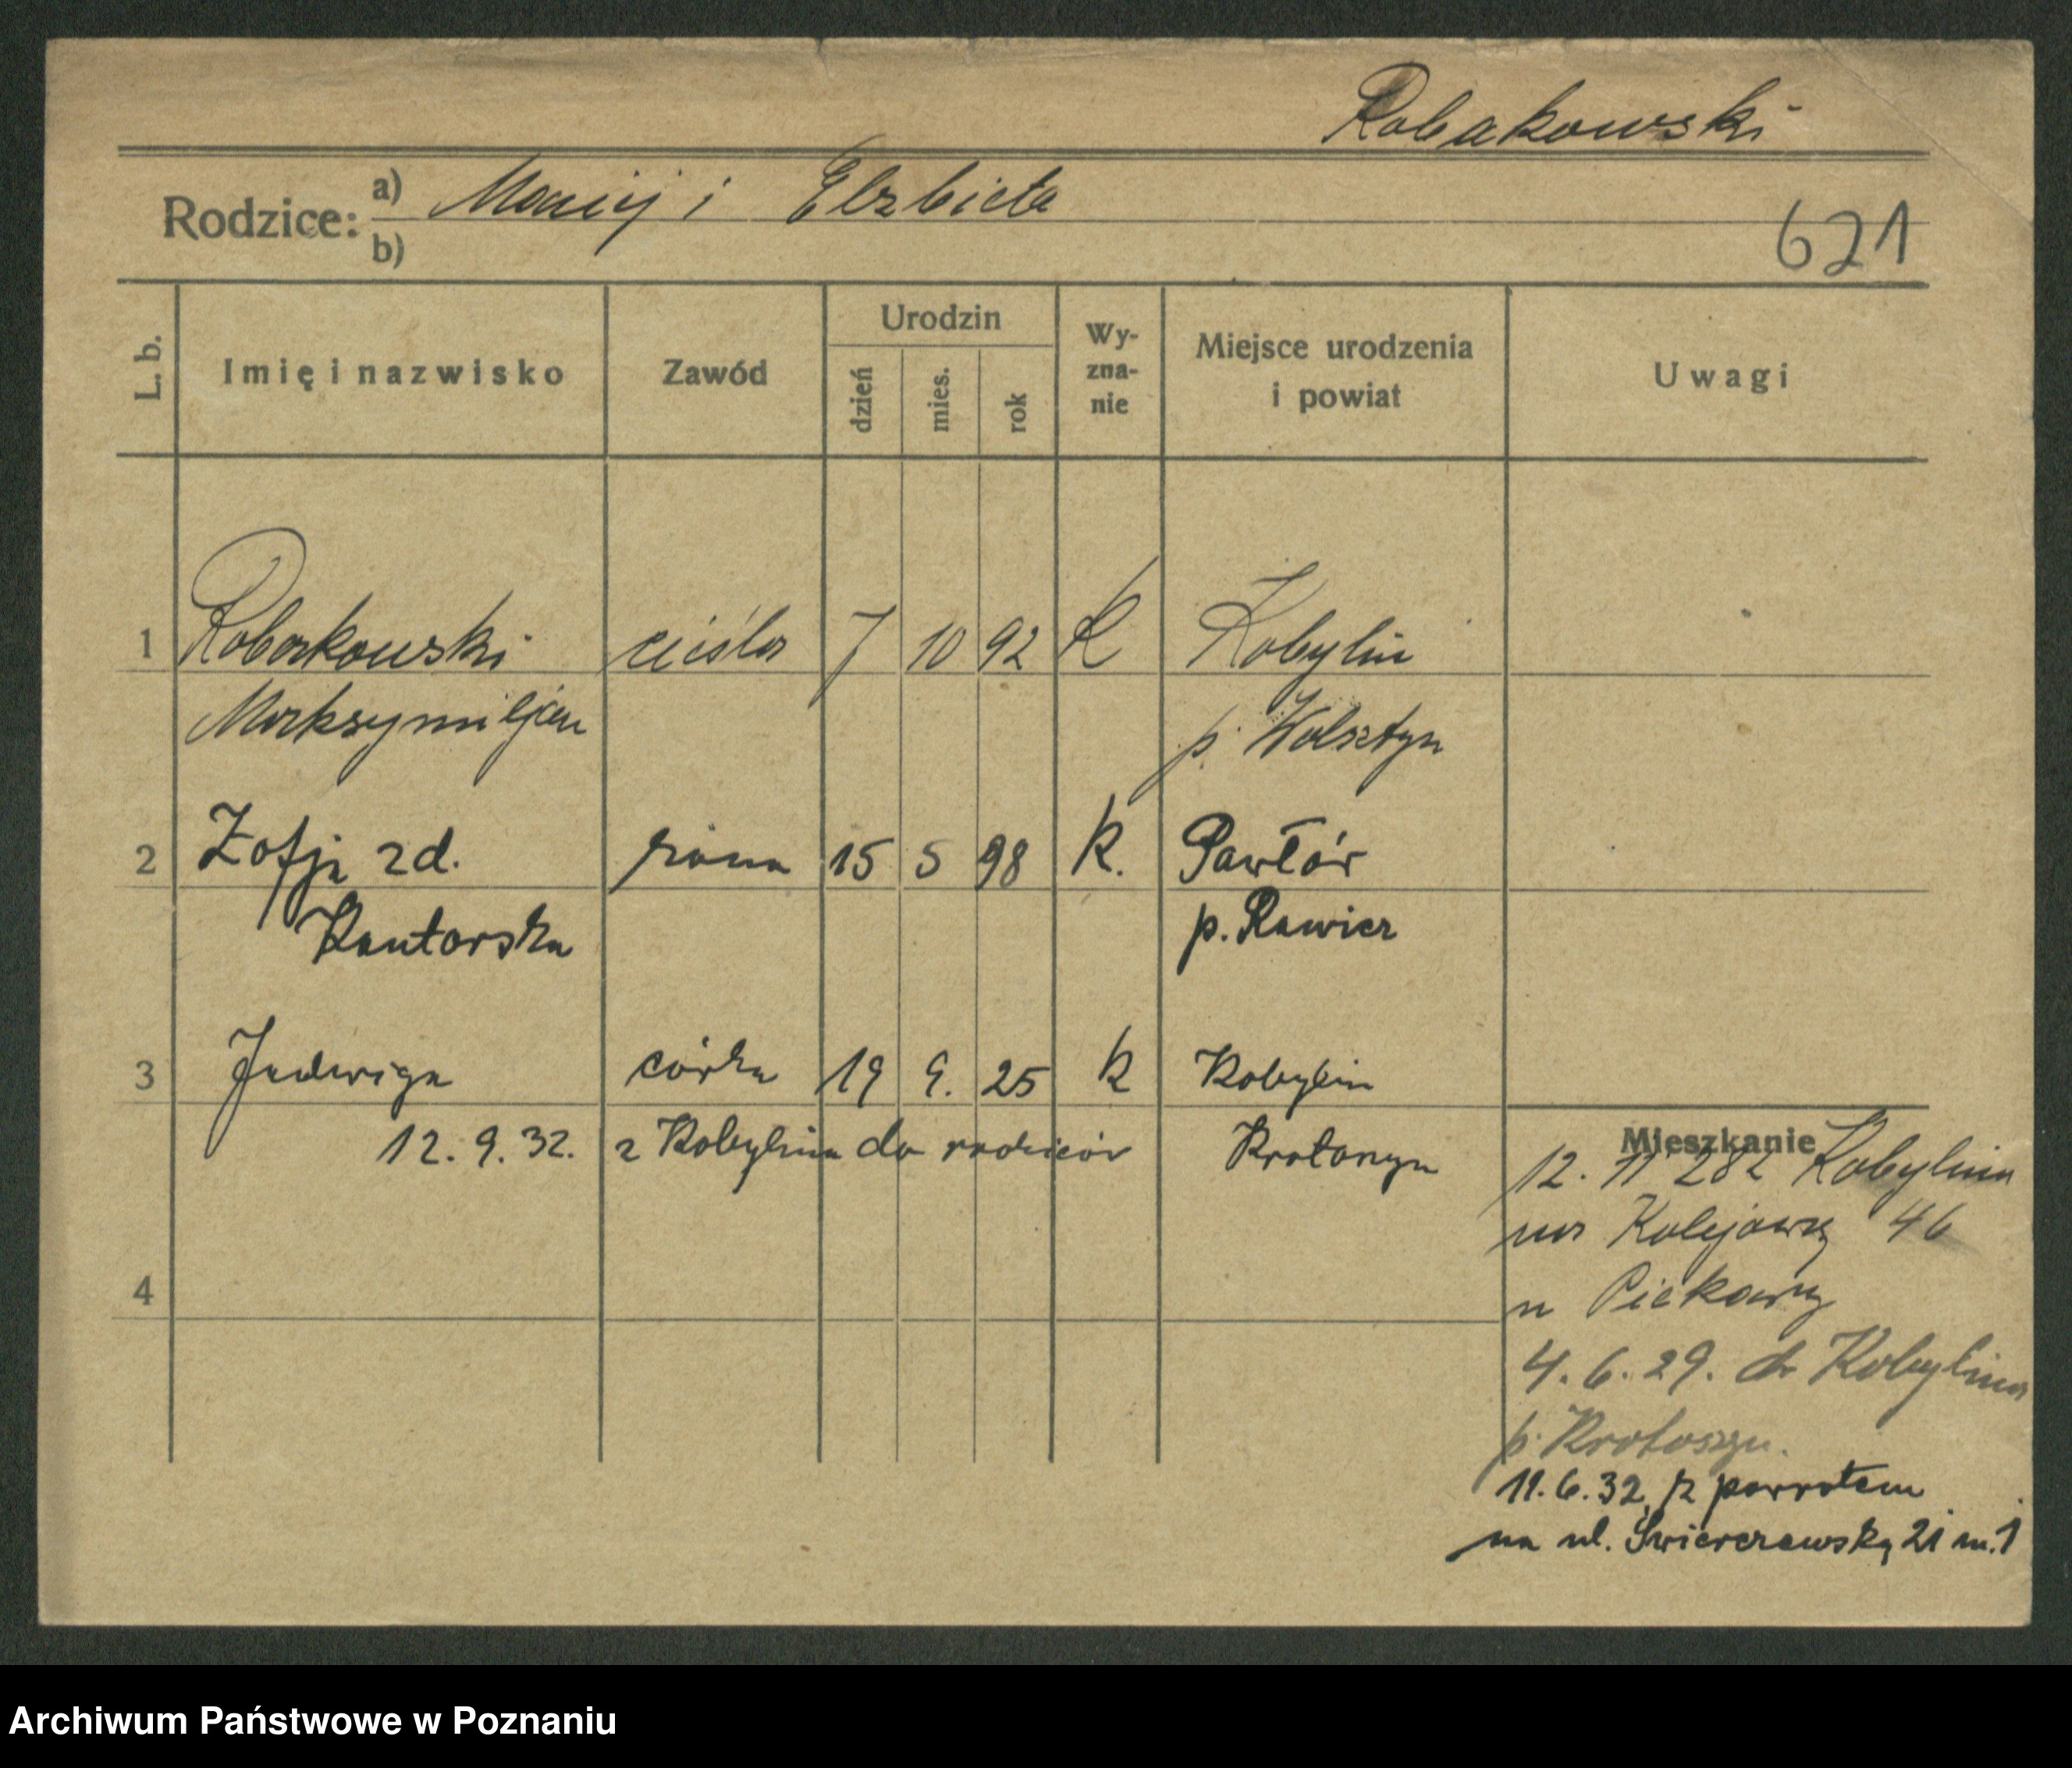 Robakowski
Rodzice: a) Maciej i Elzbieta
b)
621
L. b.
Imię i nazwisko
Zawód
Urodzin
dzień
mies.
rok
Wy-
zna-
nie
Miejsce urodzenia
i powiat
Uwagi
1 Robakowski cieśla 7 10 92 K Kobylin
Maksymiljan p. Wolsztyn
2 Zofja zd. żona 15 5 98 K. Pawłów
Kantorska p. Rawicz
3 Jadwiga córka 19 9. 25 K Kobylin
12. 9. 32. z Kobylina do rodziców Krotoszyn
4
Mieszkanie
12. 11 28 z Kobylina
na Kolejową 46
u Piekarny
4. 6. 29. do Kobylina
p. Krotoszyn.
11. 6. 32 z powrotem
na ul. Świerczewską 21 m. 1
Archiwum Państwowe w Poznaniu